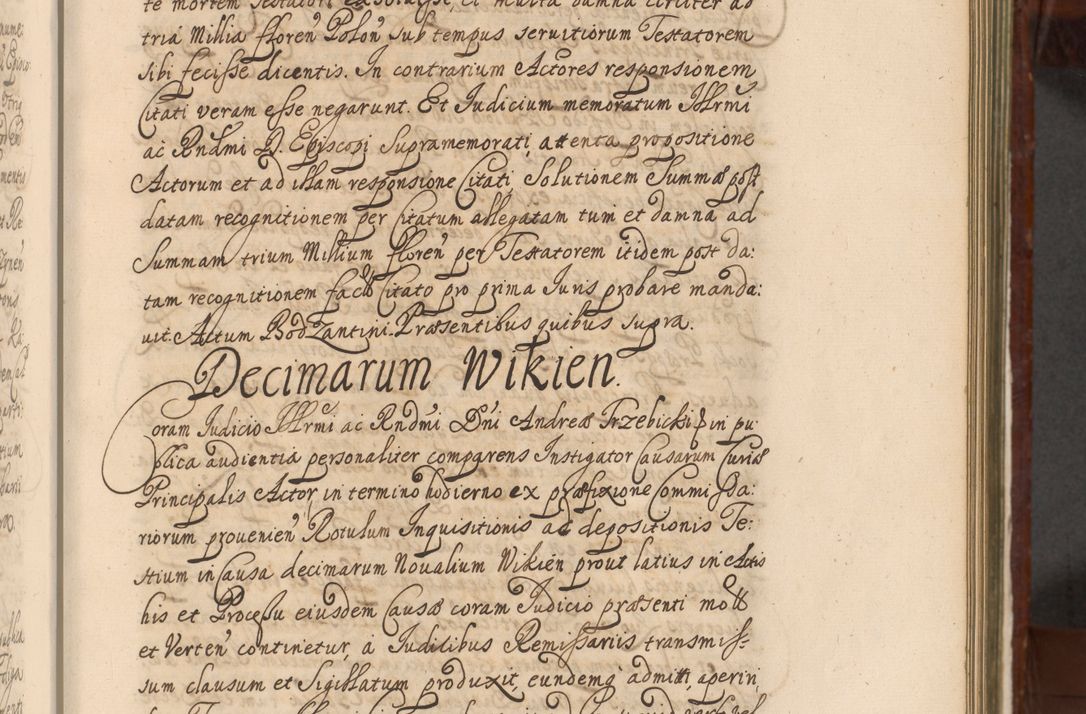 te mortem Testatori exsoluisse, et multa damna circiter ad
tria Millia floren Polon sub tempus seruitiorum Testatorem
sibi fecisse dicentis. In contrarium Actores responsionem
Citati veram esse negarunt. Et Iudicium memoratum Illrmi
ac Rndmi D. Episcopi supramemorati, attenta propositione
Actorum et ad illam responsione Citati, Solutionem Summæ post
datam recognitionem per Citatum allegatam tum et damna ad
Summam trium Millium floren per Testatorem itidem post da:
tam recognitionem facta Citato pro prima Iuris probare manda:
uit. Actum Bodzantini. Præsentibus quibus supra.
Decimarum Wikien.
Coram Iudicio Illrmi ac Rndmi Dni Andreæ Trzebicki in pu:
blica audientia personaliter comparens Instigator Causarum Curiæ
Principalis Actor, in termino hodierno ex præfixione Commissa:
riorum prouenien Rotulum Inquisitionis ac depositionis Te:
stium in Causa decimarum Noualium Wikien prout latius in Actis
his et Processu eiusdem Causæ coram Iudicio præsenti mott
et Verten continetur, a Iudicibus Remissariis transmiss-
sum clausum et Sigillatum produxit, eundemq admitti, aperiri,